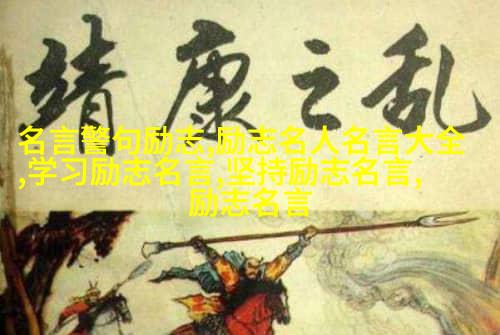 靖康之乱
名言警句励志,励志名人名言大全
,学习励志名言,坚持励志名言,
励志名言